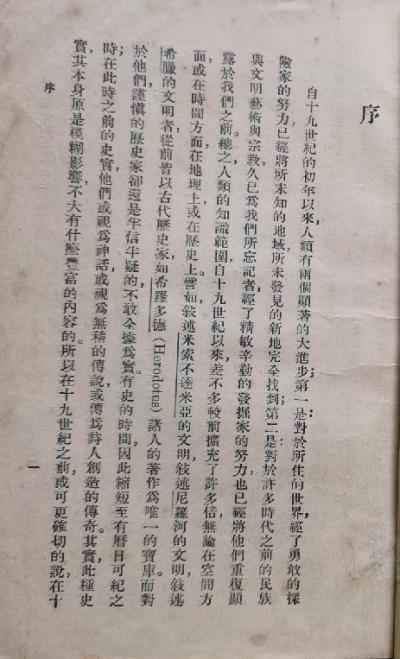 序
自十九世紀的初年以來人類有兩個顯著的大進步：第一是對於所住的世界經了勇敢的探
險家的努力已經將所未知的地域所未發見的新地完全找到；第二是對於許多時代之前的民族
與文明藝術與宗教久已爲我們所忘記者經了精敏辛勤的發掘家的努力也已經將他們重復顯
露於我們之前。總之人類的知識範圍自十九世紀以來差不多較前擴充了許多倍無論在空間方
面或在時間方面，在地理上或在歷史上。譬如敍述米索不達米亞的文明，敍述尼羅河的文明，敍述
希臘的文明者從前皆以古代歷史家如希羅多德（Herodotus）諸人的著作爲唯一的寶庫。而對
於他們，謹慎的歷史家卻還是半信半疑的，不敢全據爲實。有史的時間，因此縮短至有曆日可紀之
時；在此時之前的史實他們或視爲神話或視爲無稽的傳說或傳爲詩人創造的傳奇。其實此種史
實其本身原是模糊影響，不大有什麼豐富的內容的。所以在十九世紀之前或可更確切的說在十
序
一